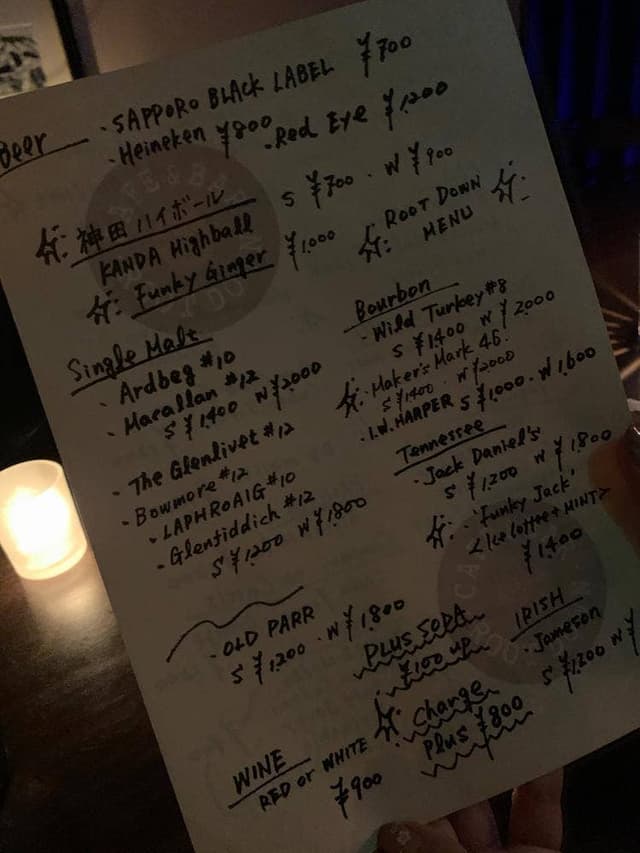 Beer
・SAPPORO BLACK LABEL ¥700
・Heineken ¥800 ・Red Eye ¥1,200
神田ハイボール S ¥700 ・ W ¥900
KANDA Highball
Funky Ginger ¥1,000
ROOT DOWN
MENU
Single Malt
・Ardbeg #10
・Macallan #12
S ¥1400 W ¥2000
・The Glenlivet #12
・Bowmore #12
・LAPHROAIG #10
・Glenfiddich #12
S ¥1200 W ¥1,800
・OLD PARR
S ¥1200 ・W ¥1,800
WINE
RED or WHITE
¥900
Bourbon
・Wild Turkey #8
S ¥1400 W ¥2000
・Maker's Mark 46.
S ¥1400 ・W ¥2000
・I.W. HARPER S ¥1,000 ・ W 1,600
Tennessee
・Jack Daniel's
S ¥1200 W ¥1,800
・'Funky Jack'
<Ice Coffee + MINT>
¥1,400
PLUS SODA
¥100 up
Charge
Plus ¥800
IRISH
・Jameson
W ¥